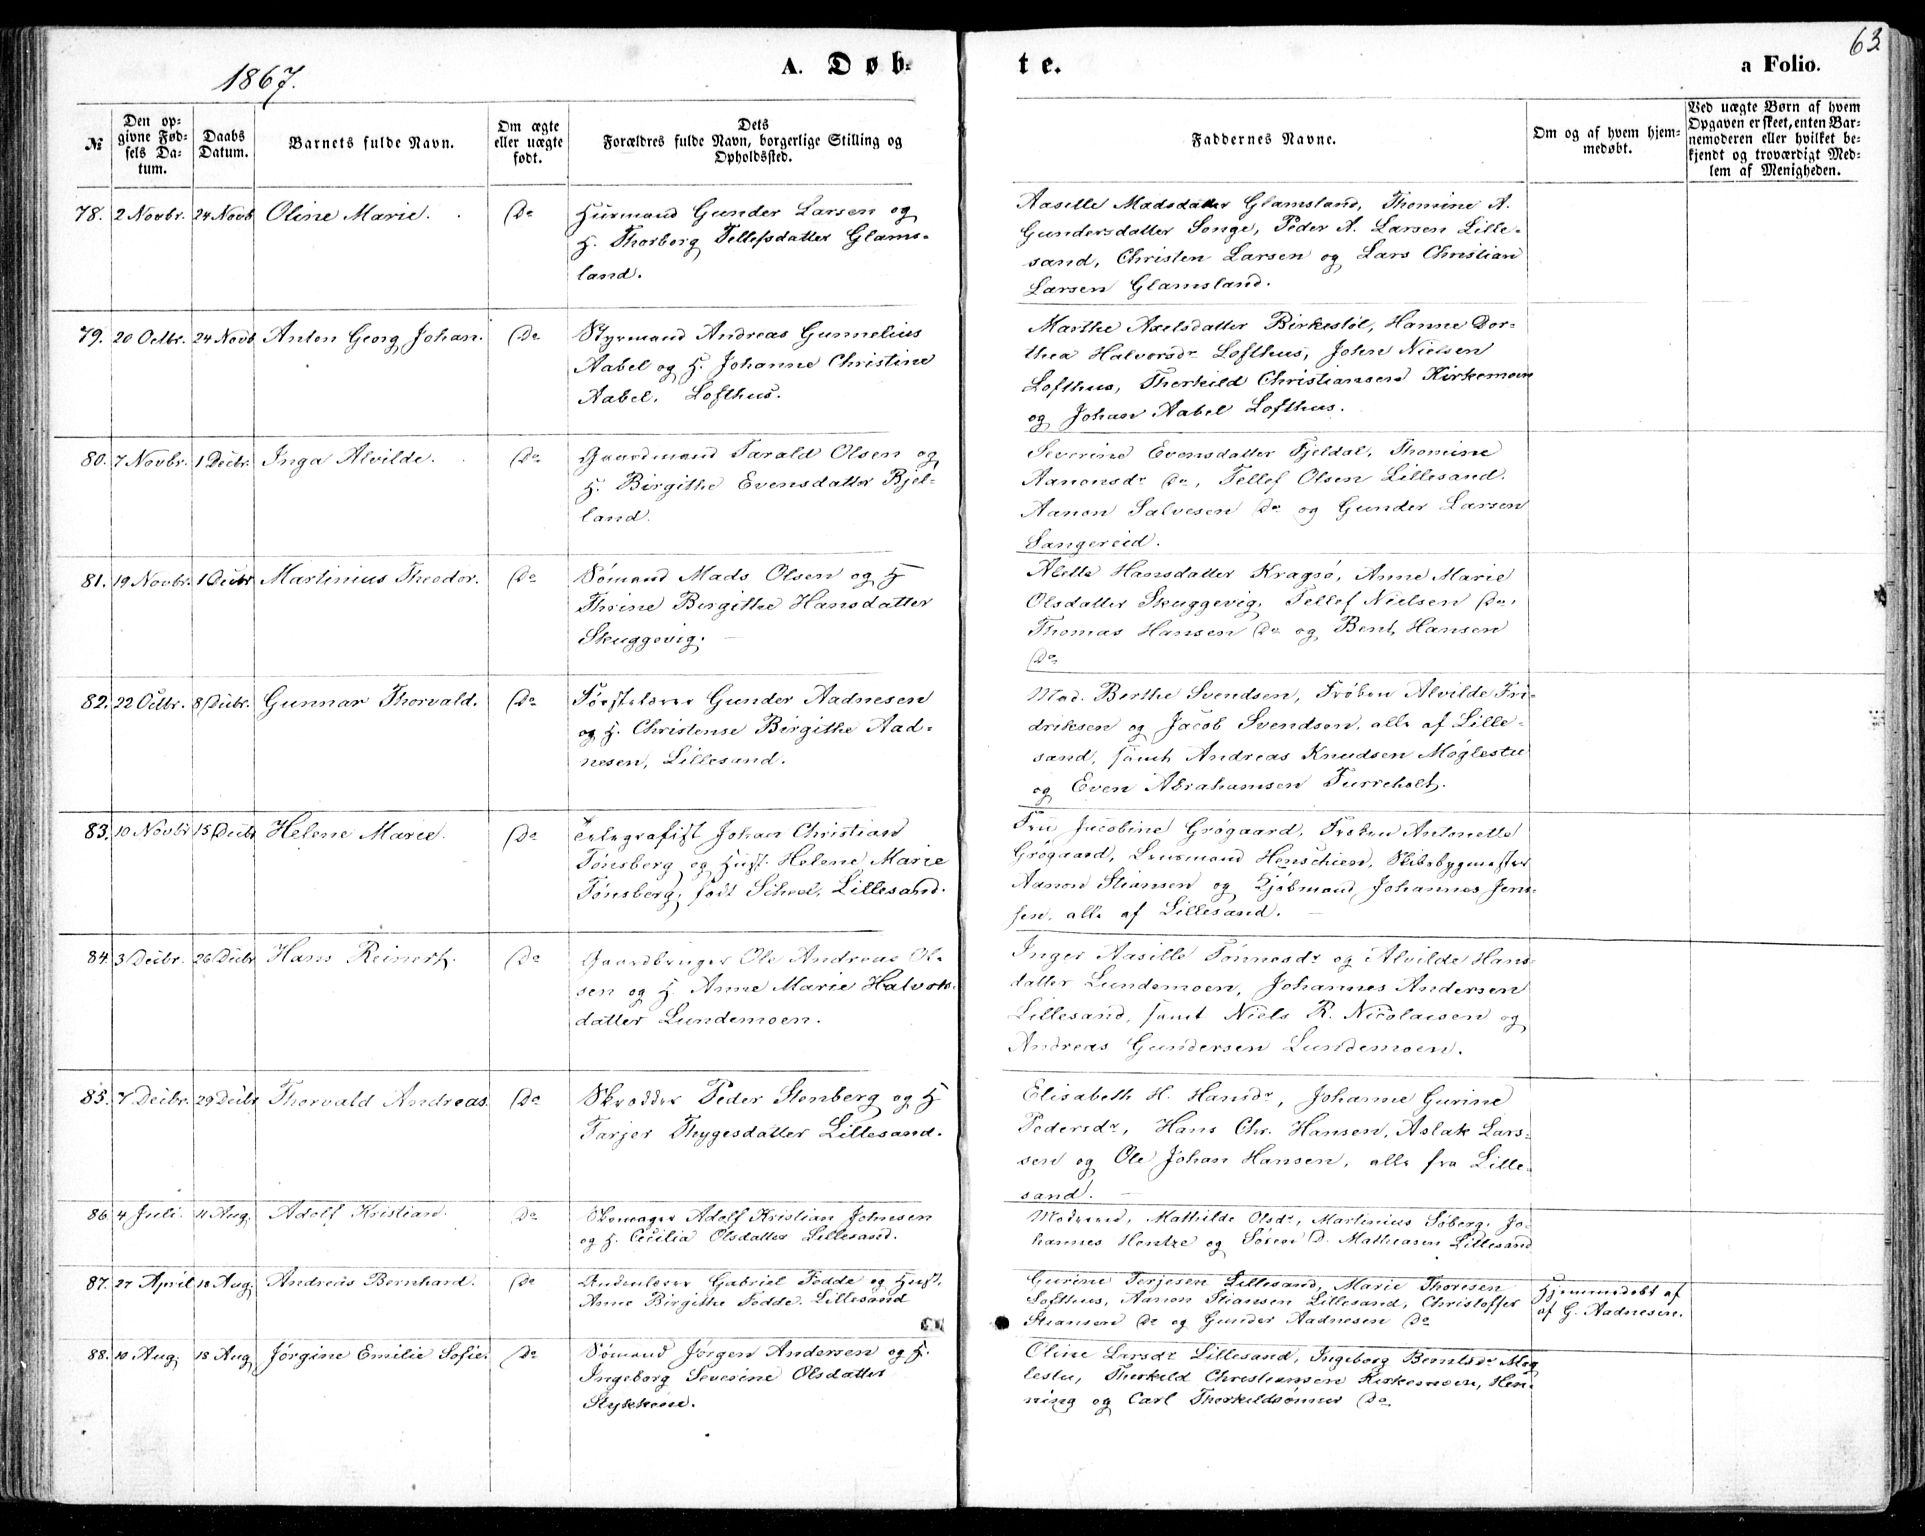 1867.
A. Døb-
te.
a Folio.
63
№
Den op-
givne Fød-
sels Da-
tum.
Daabs
Datum.
Barnets fulde Navn.
Om ægte
eller uægte
født.
Dets
Forældres fulde Navn, borgerlige Stilling og
Opholdssted.
Faddernes Navne.
Om og af hvem hjem-
medøbt.
Ved uægte Børn af hvem
Opgaven er skeet, enten Bar-
nemoderen eller hvilket be-
kjendt og troværdigt Med-
lem af Menigheden.
78. 2 Novbr. 24 Novb Oline Marie. Do
Huusmand Gunder Larsen og
H. Thorborg Tellefsdatter Glams-
land.
Aasille Madsdatter Glamsland, Thomine A.
Gundersdatter Songe, Peder A. Larsen Lille-
sand, Christen Larsen og Lars Christian
Larsen Glamsland.
79. 20 Octbr. 24 Novb Anton Georg Johan. Do
Styrmand Andreas Gunnelius
Aabel og H. Johanne Christine
Aabel, Lofthus.
Marthe Axelsdatter Birkestøl, Hanne Dor-
thea Halvorsdr Lofthus, John Nielsen
Lofthus, Therkild Christiansen Kirkemoen
og Johan Aabel Lofthus.
80. 7 Novbr. 1 Decbr. Inga Alvilde. Do
Gaardmand Tarald Olsen og
H. Birgithe Evensdatter Bjel-
land.
Severine Evensdatter Fjeldal, Thomine
Aanonsdr Do, Tellef Olsen Lillesand.
Aanon Salvesen Do og Gunder Larsen
Sangereid.
81. 19 Novbr. 1 Decbr Martinius Theodor. Do
Sømand Mads Olsen og H
Thrine Birgithe Hansdatter
Skuggevig.
Alette Hansdatter Kragsø, Anne Marie
Olsdatter Skuggevig, Tellef Nielsen Do,
Thomas Hansen Do og Bent Hansen
Do
82. 22 Octbr. 8 Decbr. Gunnar Thorvald. Do
Førstelærer Gunder Aadnesen
og H. Christense Birgithe Aad-
nesen, Lillesand.
Mad. Berthe Svendsen, Frøken Alvilde Fri-
driksen og Jacob Svendsen, alle af Lille-
sand, samt Andreas Knudsen Møglestu
og Even Abrahamsen Furreholt.
83. 10 Novbr 15 Decbr Helene Marie. Do
Telegrafist Johan Christian
Tønsberg og Hust. Helene Marie
Tønsberg, født Scheel, Lillesand.
Fru Jacobine Grøgaard, Frøken Antonette
Grøgaard, Lensmand Henschien, Skibsbygmester
Aanon Stiansen og Kjøbmand Johannes Jens-
sen, alle af Lillesand.
84. 3 Decbr. 26 Decbr Hans Reinert. Do
Gaardbruger Ole Andreas Ol-
sen og H Anne Marie Halvors-
datter Lundemoen.
Inger Aasille Tønnesdr og Alvilde Hans-
datter Lundemoen, Johannes Andersen
Lillesand, samt Niels R. Nicolaisen og
Andreas Gundersen Lundemoen.
85. 7 Decbr. 29 Decbr Thorvald Andreas. Do
Skrædder Peder Stenberg og H
Tarjer Thygesdatter Lillesand.
Elisabeth H. Hansdr, Johanne Gurine
Pedersdr, Hans Chr. Hansen, Aslak Lars-
sen og Ole Johan Hansen, alle fra Lille-
sand.
86 4 Juli. 11 Aug. Adolf Kristian. Do
Skomager Adolf Kristian Johnsen
og H. Cecilia Olsdatter Lillesand.
Moderen, Mathilde Olsdr, Martinius Søberg, Jo-
hannes Hentze og Søren D. Mathiasen Lillesand
87. 27 April 18 Aug. Andreas Bernhard. Do
Andenlærer Gabriel Fedde og Hust.
Anne Birgithe Fedde. Lillesand
Gurine Terjesen Lillesand, Marie Thoresen
Lofthus, Aanon Stiansen Lillesand, Christoffer
Stiansen Do og Gunder Aadnesen Do
Hjemmedøbt af
af G. Aadnesen.
88. 10 Aug. 18 Aug Jørgine Emilie Sofie. Do
Sømand Jørgen Andersen og H.
Ingeborg Severine Olsdatter
Stykkene.
Oline Larsdr Lillesand, Ingeborg Berntsdr Møg-
lestu, Therkild Christiansen Kirkemoen, Hen-
ning og Carl Therkildsønner Do